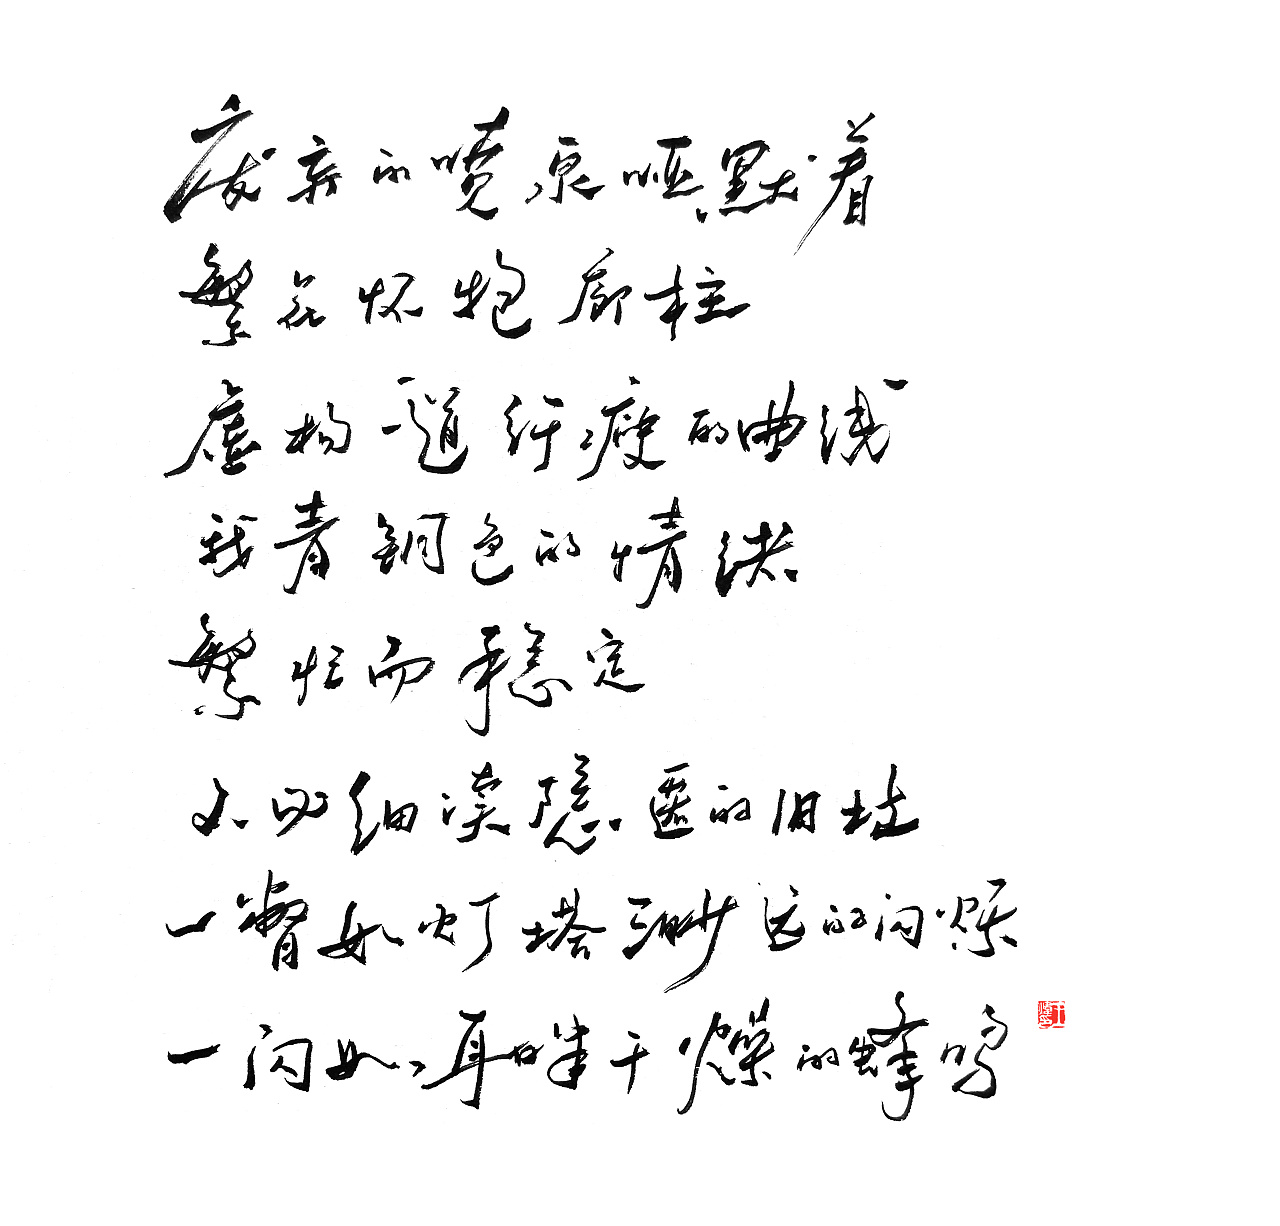 废弃的喷泉哑默着
繁花怀抱廊柱
虚构一道纤瘦的曲线
我青铜色的情绪
繁忙而稳定
不必细读隐匿的旧址
一瞥如灯塔渺远的闪烁
一闪如耳畔干燥的蜂鸣